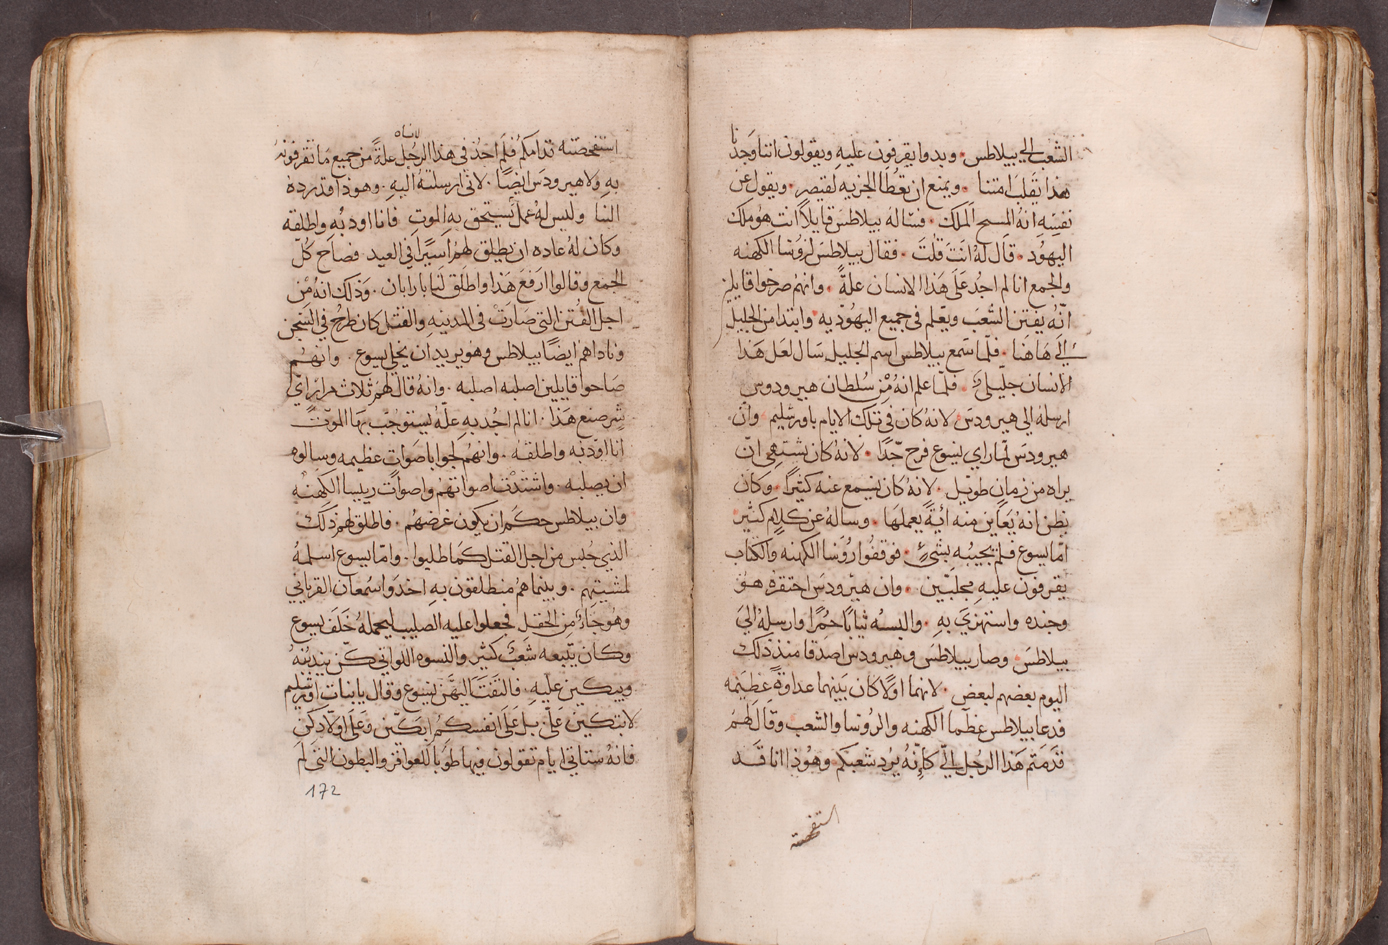 الشعب الى بيلاطس • وبدوا يقرفون عليه ويقولون اننا وجدنا
هذا يقلب امتنا • ويمنع ان تعطا الجزيه لقيصر • ويقول عن
نفسه انه المسيح الملك • فساله بيلاطس قايلا انت هو ملك
اليهود • قال له انت قلت • فقال بيلاطس لروسا الكهنه
والجمع انا لم اجد على هذا الانسان علة • وانهم صرخوا قايلين
انه يفتن الشعب ويعلم في جميع اليهوديه • وابتدا من الجليل
الى هاهنا • فلما سمع بيلاطس اسم الجليل سال لعل هذا
الانسان جليلي • فلما علم انه من سلطان هيرودوس
ارسله الى هيرودس • لانه كان في تلك الايام باورشليم • وان
هيرودس لما راى يسوع فرح جدا • لانه كان يشتهي ان
يراه من زمان طويل • لانه كان يسمع عنه كثيرا • وكان
يظن انه يعاين منه اية يعملها • وساله عن كلام كثير
اما يسوع فلم يجيبه بشي • فوقفوا روسا الكهنه والكتاب
يقرفون عليه مجلبين • وان هيرودس احتقره هو
وجنده واستهزي به • والبسه ثيابا حمرا وارسله الى
بيلاطس • وصار بيلاطس وهيرودس اصدقا منذ ذلك
اليوم بعضهم لبعض • لانهما اولا كان بينهما عداوة عظيمه
فدعا بيلاطس عظما الكهنه والروسا والشعب وقال لهم
قدمتم هذا الرجل الي كانه يرد شعبكم وهوذا انا قد
استفحصته
استفحصته قدامكم فلم اجد في هذا الرجل علة من جميع ما تقرفونه
به ولا هيرودس ايضا • لاني ارسلته اليه • وهوذا قد رده
الينا وليس له عمل يستحق به الموت فانا اودبه واطلقه
وكان له عاده ان يطلق لهم اسيرا في العيد فصاح كل
الجمع وقالوا ارفع هذا واطلق لنا بارابان • وذلك انه من
اجل الفتن التي صارت في المدينه والقتل كان طرح في السجن
وناداهم ايضا بيلاطس وهو يريد ان يخلي يسوع • وانهم
صاحوا قايلين اصلبه اصلبه • وانه قال لهم ثلاث مرار اي
شر صنع هذا • انا لم اجد به علة يستوجب بها الموت
انا اودبه واطلقه • وانهم لجوا باصوات عظيمه وسالوه
ان يصلبه • واشتدت اصواتهم واصوات رييسا الكهنه
وان بيلاطس حكم ان يكون غرضهم • فاطلق لهم ذلك
الذي حبس من اجل القتل كما طلبوا • واما يسوع اسلمه
لمشيتهم • وبينما هم منطلقون به اخذوا سمعان القرياني
وهو جاء من الحقل فجعلوا عليه الصليب ليحمله خلف يسوع
وكان يتبعه شعب كثير والنسوه اللواتي كن يندبنه
ويبكين عليه • فالتفت اليهن يسوع وقال يا بنات اورشليم
لا تبكين علي بل على انفسكم ابكين وعلى اولادكن
فانه ستاتي ايام تقولون فيها طوبا للعواقر والبطون التي لم
172